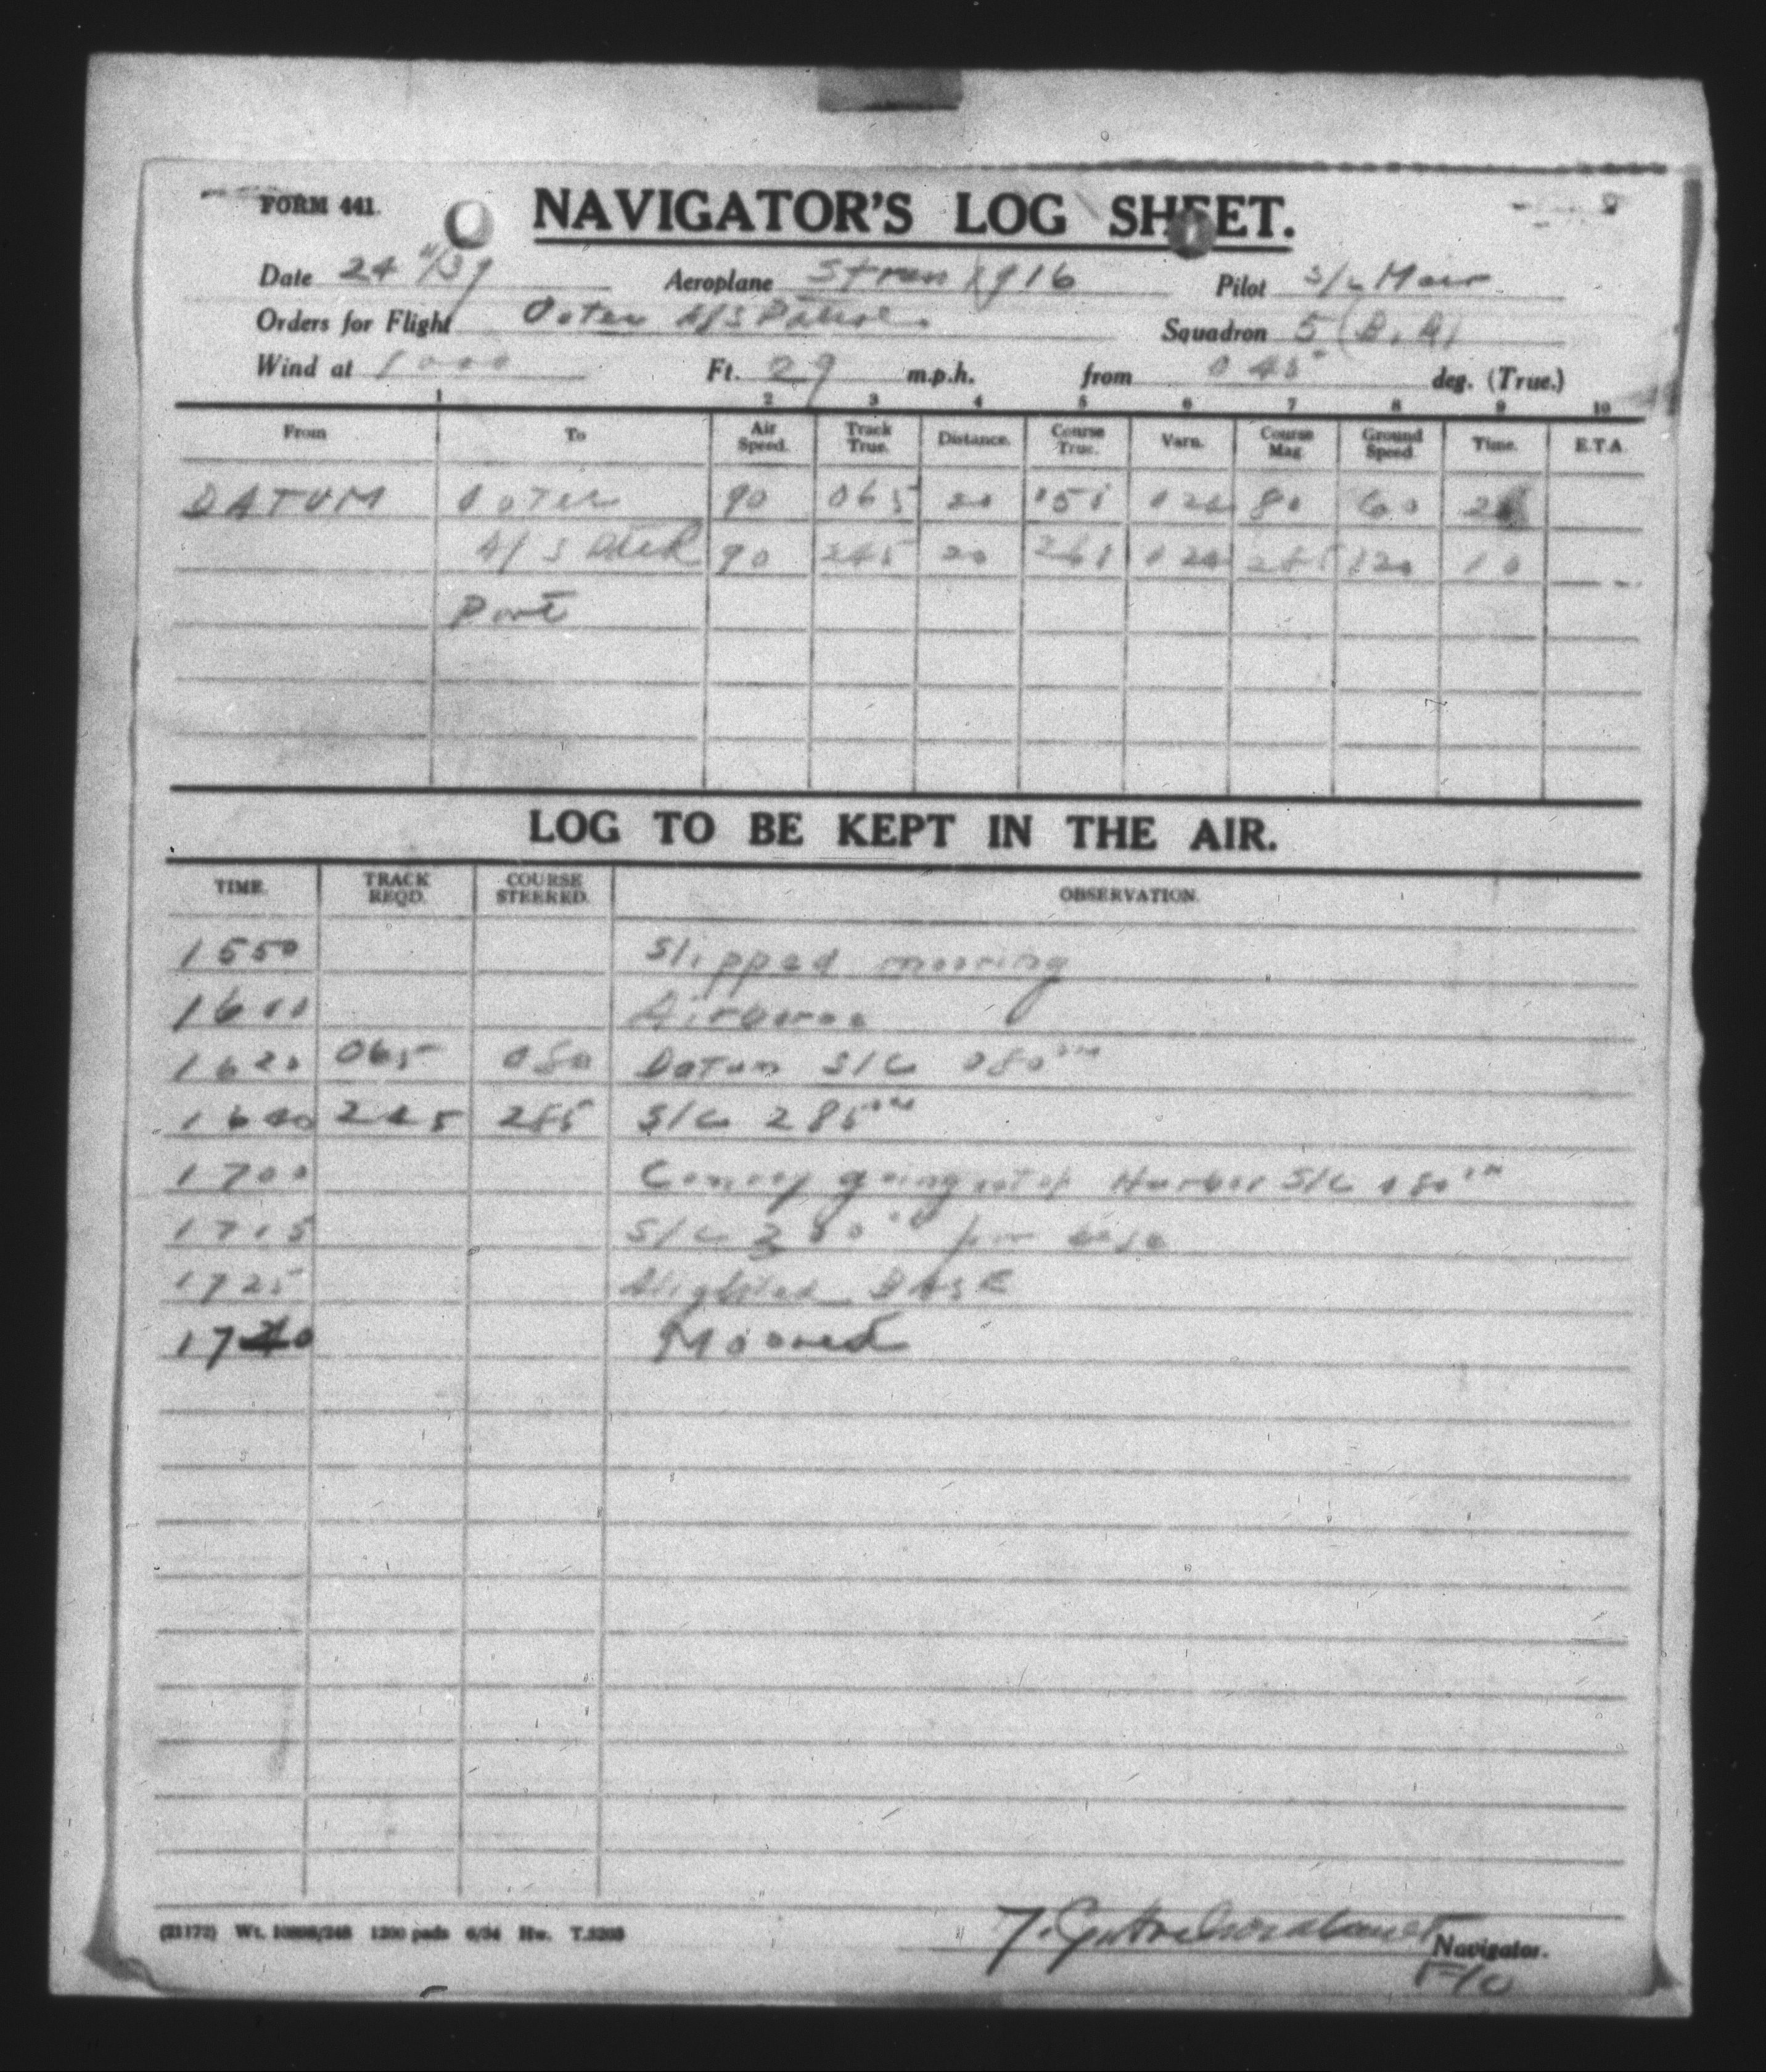 FORM 441. NAVIGATOR'S LOG SHEET.
Date 24 Aeroplane Stran 916 Pilot S/L
Orders for Flight Outer A/S Patrol Squadron 5 (B.R)
Wind at 1000 Ft. 29 m.p.h. from 045° deg. (True.)
1 2 3 4 5 6 7 8 9 10
From To Air Speed. Track True. Distance. Course True. Varn. Course Mag. Ground Speed. Time. E.T.A.
DATUM Outer 90 065 20 80 60
A/S 90 245 20 261 024 285 120 10
Port
LOG TO BE KEPT IN THE AIR.
TIME. TRACK REQD. COURSE STEERED. OBSERVATION.
1550 Slipped mooring
Airborne
1620 065 080 Datum S/C 080°M
1640 245 285 S/C 285°M
1700 Convoy going out of Harbor S/C 080°M
1715 S/C for base
1725 Alighted BASE
Moored
(21172) Wt. 10808/248 1200 pads 6/34 Hw. T.5203
Navigator.
F/O